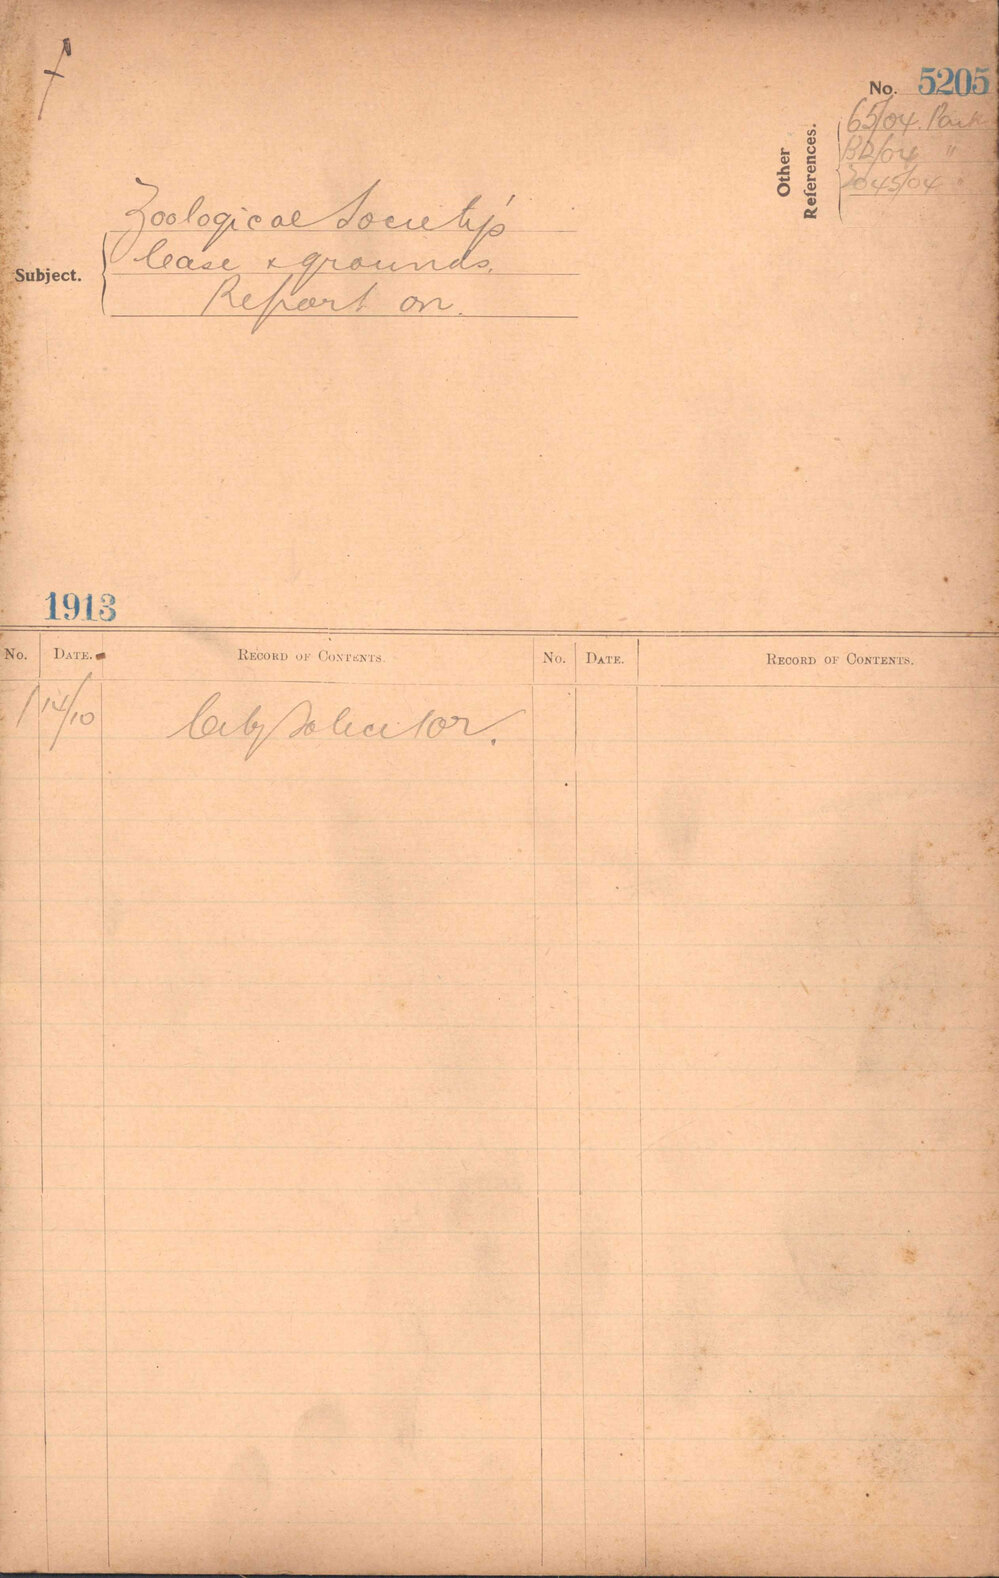 No. 5205
Other References.
65/04. Park
82/04 "
2045/04 "
Subject.
Zoological Society's
lease & grounds.
Report on.
1913
No. DATE. RECORD OF CONTENTS. No. DATE. RECORD OF CONTENTS.
1 14/10 City Solicitor.